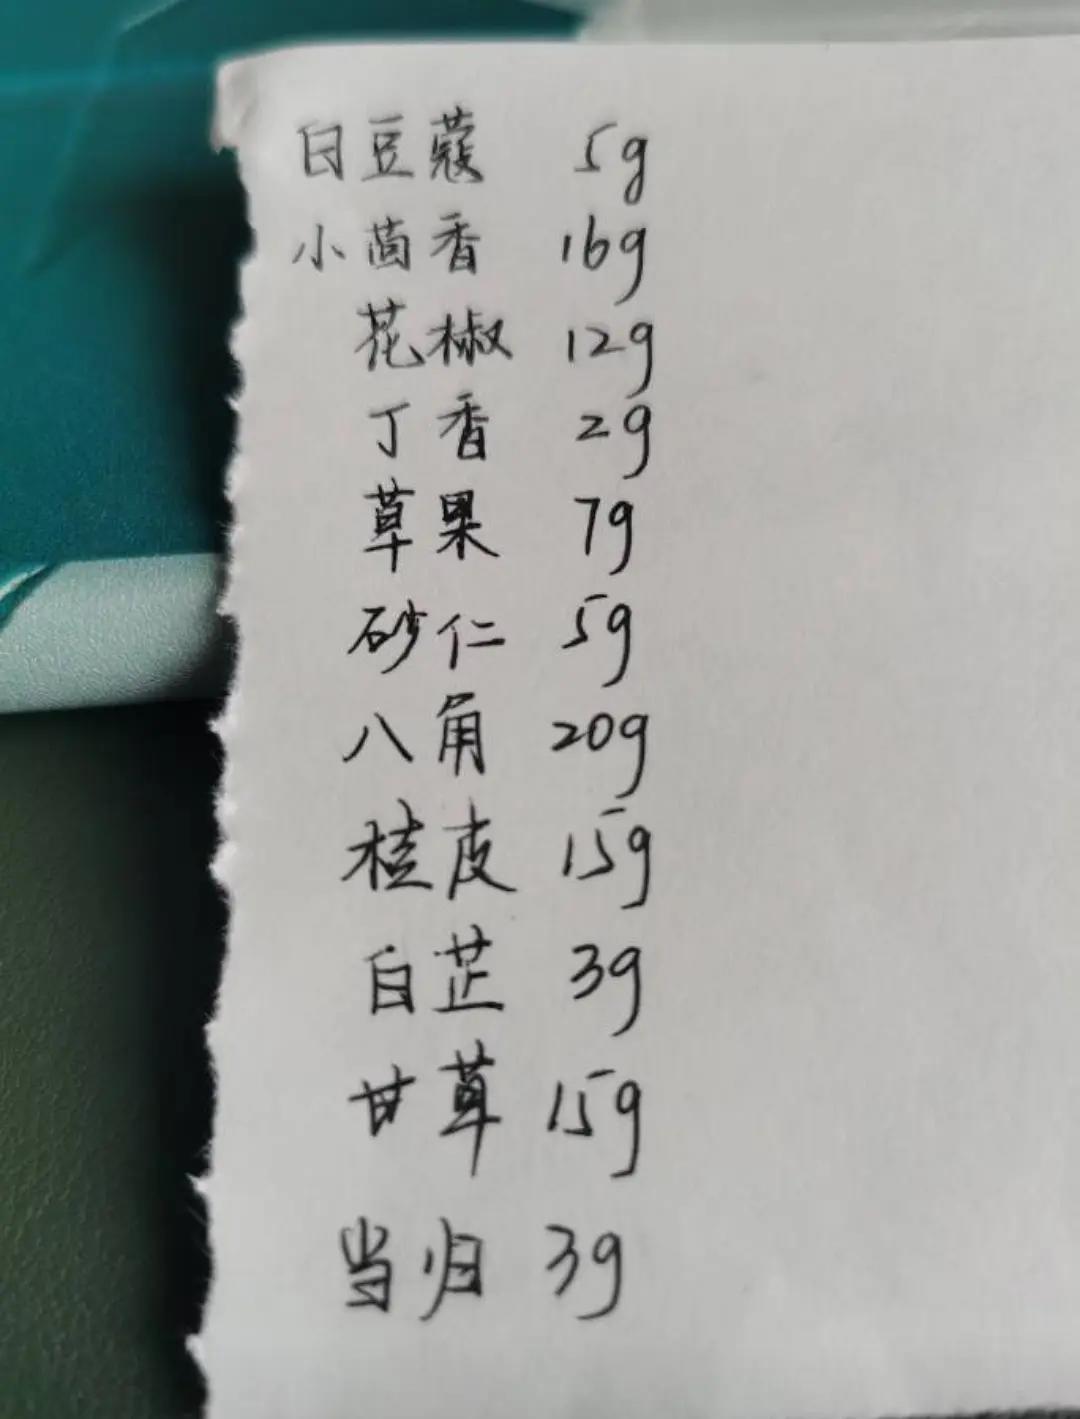 白豆蔻 5g
小茴香 16g
花椒 12g
丁香 2g
草果 7g
砂仁 5g
八角 20g
桂皮 15g
白芷 3g
甘草 15g
当归 3g